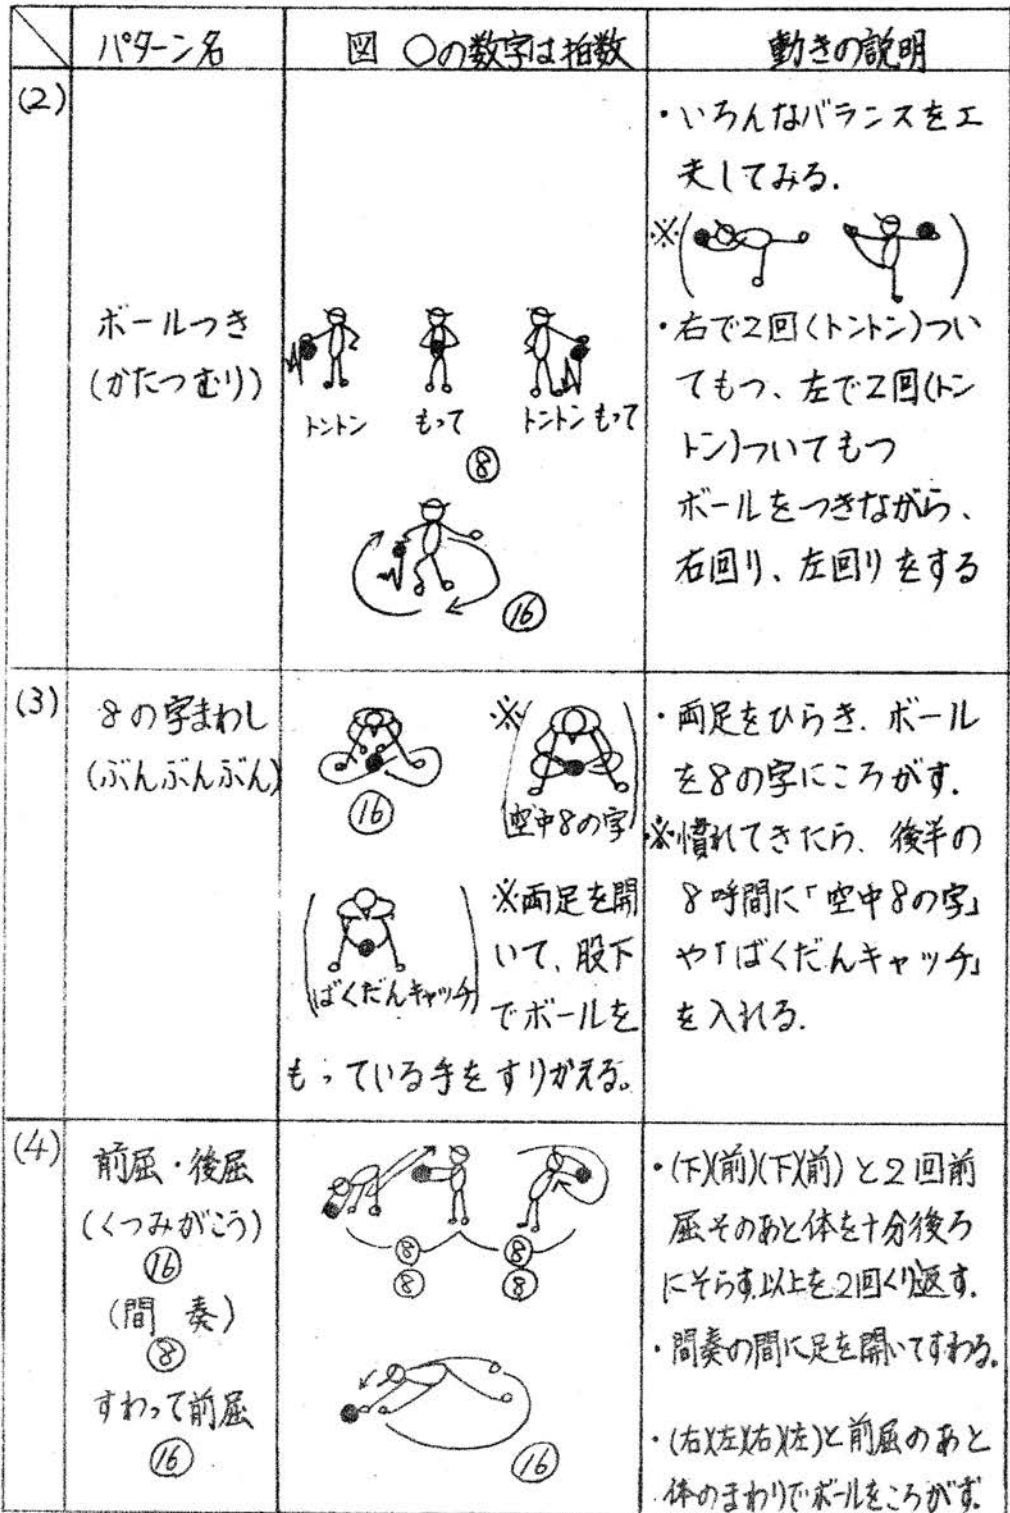 パターン名
図 ○の数字は拍数
動きの説明
(2)
ボールつき
(かたつむり)
トントン もって トントンもって
⑧
⑯
・いろんなバランスを工
夫してみる.
※( )
・右で2回(トントン)つい
てもつ、左で2回(トン
トン)ついてもつ
ボールをつきながら、
右回り、左回りをする
(3)
8の字まわし
(ぶんぶんぶん)
⑯
※(空中8の字)
(ばくだんキャッチ)
※両足を開
いて、股下
でボールを
もっている手をすりかえる。
・両足をひらき、ボール
を8の字にころがす.
※慣れてきたら、後半の
8呼間に「空中8の字」
や「ばくだんキャッチ」
を入れる.
(4)
前屈・後屈
(くつみがこう)
⑯
(間 奏)
⑧
すわって前屈
⑯
⑧ ⑧
⑧ ⑧
⑯
・(下)(前)(下)(前)と2回前
屈そのあと体を十分後ろ
にそらす.以上を2回くり返す.
・間奏の間に足を開いてすわる。
・(右)(左)(右)(左)と前屈のあと
体のまわりでボールをころがす.